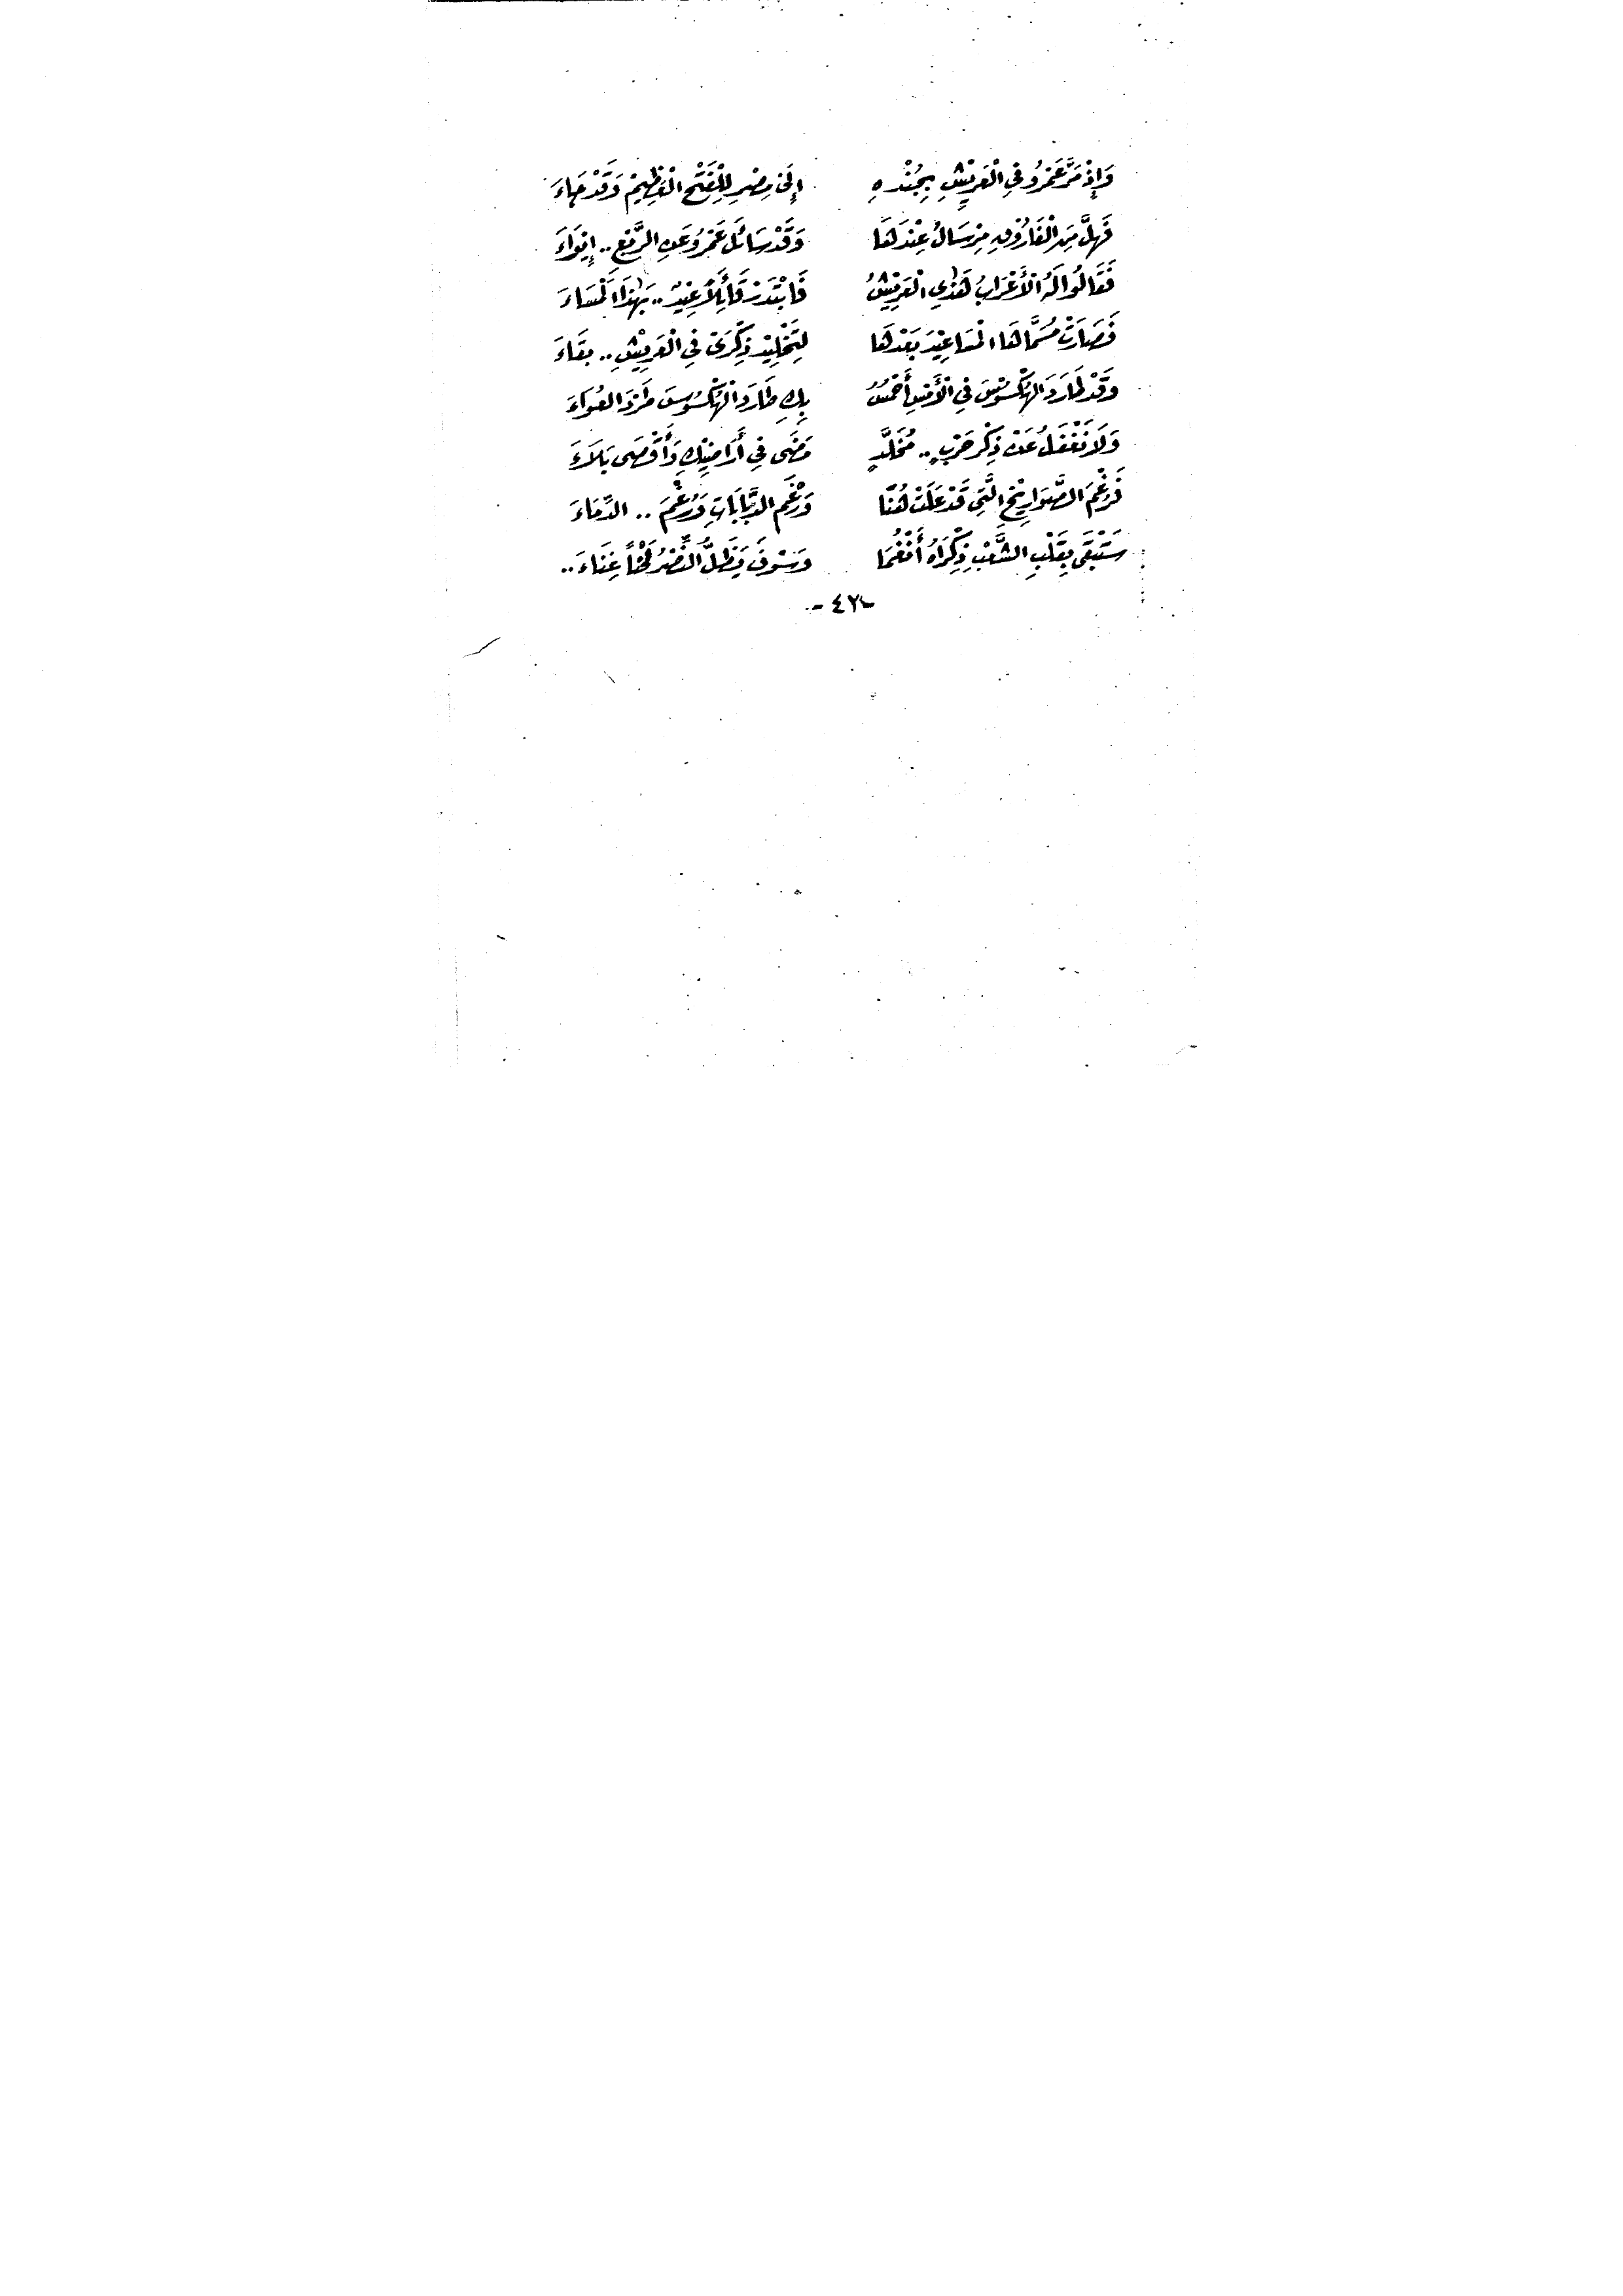 وَإِذْ مَرَّ عَمْرُو فِي الْعَرِيْشِ بِجُنْدِهِ إِلَىْ مِصْرِ لِلْفَتْحِ الْعَظِيمْ وَقَدْ جَاءَ
فَهَلَّ مِنَ الْفَارُوْقِ مِرْسَالُ عِنْدَهَا وَقَدْ سَائَلَ عَمْرُو عَنِ الرَّبْعِ .. إِيْوَاءَ
فَقَالُوا لَهُ الْأَعْرَابُ هَذِي الْعَرِيْشُ فَابْتَدَرَ قَائِلاً عِيْدٌ .. بَهَذَا الْمَسَاءَ
فَصَارَتْ مُسَمَّاهَا الْمَسَاعِيْدَ بَعْدَهَا لِتَخْلِيْدِ ذِكْرَىْ فِي الْعَرِيْشِ .. بَقَاءَ
وَقَدْ طَارَدَ الْهِكْسُوْسَ فِي الْأَمْسِ أَحْمُسُ بِكِ طَارَدَ الْهِكْسُوسَ طَرْدَ العُوَاءَ
وَلَا نَغْفَلُ عَنْ ذِكْرِ حَرْبٍ .. مُخَلَّدٍ مَضَى فِي أَرَاضِيْكِ وَأَقْصَى بَلَاءَ
فَرُغْمَ الصَّوَارِيْخِ الَّتِي قَدْ عَلَتْ هُنَا وَرُغْمَ الدَّبَّابَاتِ وَرُغْمَ .. الدِّمَاءَ
سَتَبْقَى بِقَلْبِ الشَّعْبِ ذِكْرَاهُ وَسَوْفَ يَظَلُّ النَّصْرُ لَحْناً غِنَاءَ ..
- ٤٢ -